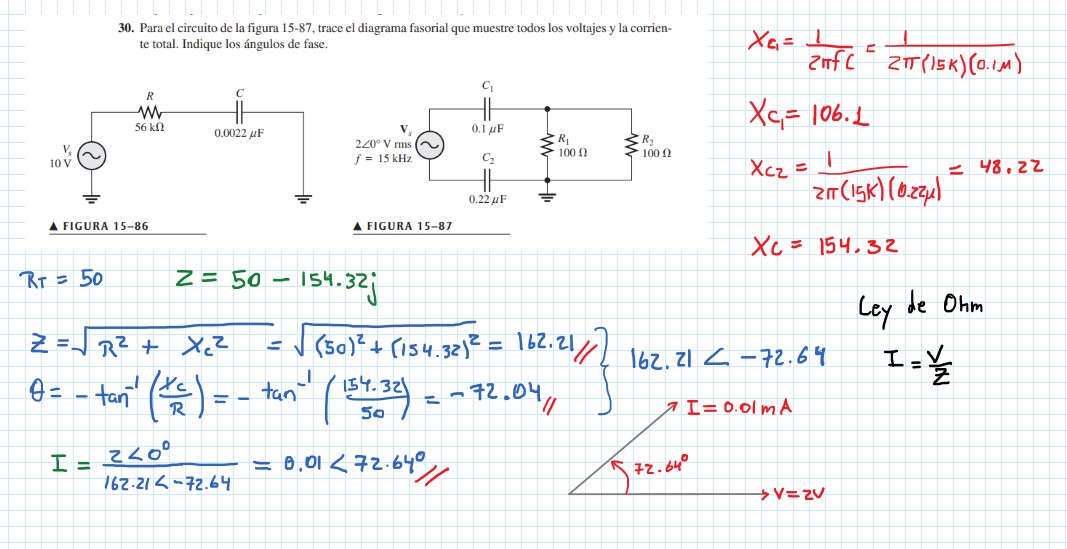 30. Para el circuito de la figura 15-87, trace el diagrama fasorial que muestre todos los voltajes y la corrien-
te total. Indique los ángulos de fase.
R
56 kΩ
C
0.0022 μF
Vs
10 V
▲ FIGURA 15–86
C1
0.1 μF
Vs
2∠0° V rms
f = 15 kHz
C2
0.22 μF
R1
100 Ω
R2
100 Ω
▲ FIGURA 15–87
XC1 = 1/2πfC = 1/2π(15K)(0.1M)
XC1 = 106.1
XC2 = 1/2π(15K)(0.22μ) = 48.22
XC = 154.32
RT = 50
Z = 50 - 154.32j
Z = √R² + Xc² = √(50)² + (154.32)² = 162.21 //
θ = - tan⁻¹ (Xc/R) = - tan⁻¹ (154.32/50) = -72.04 //
162.21 < -72.64
Ley de Ohm
I = V/Z
I = 2<0°/162.21<-72.64 = 0.01 < 72.64° //
I = 0.01mA
72.64°
V = 2V